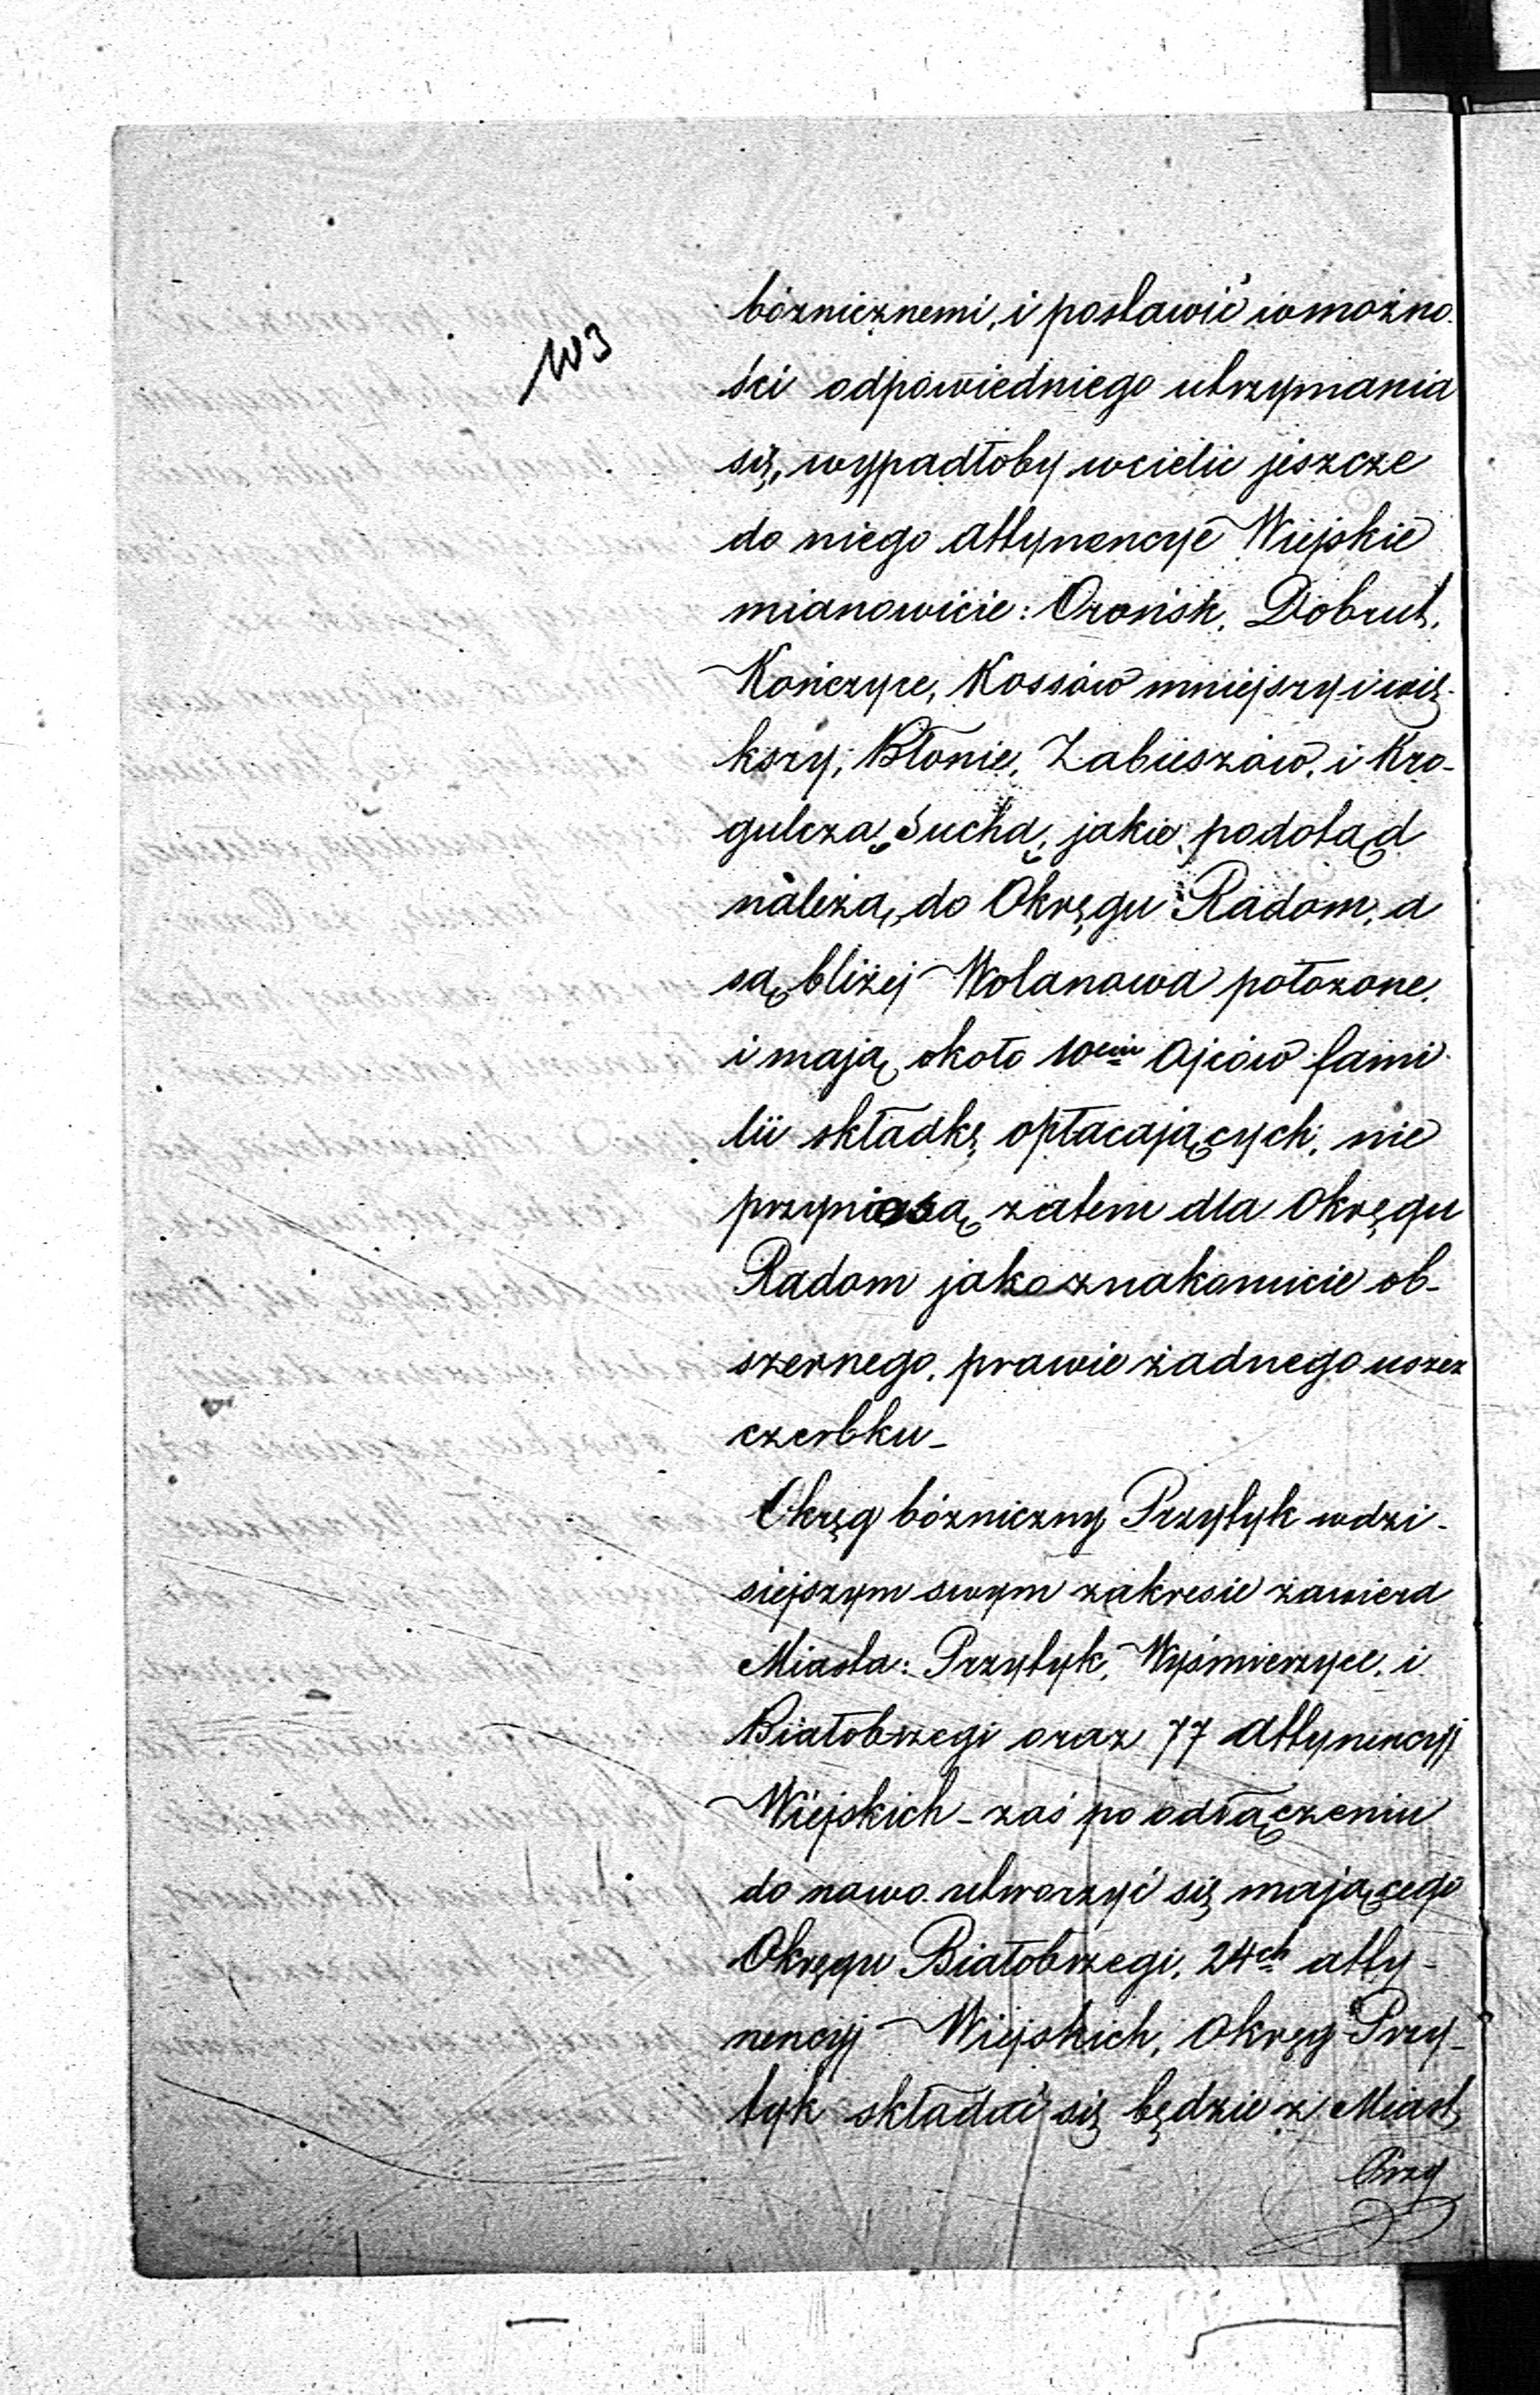 103
bóżnicznemi, i postawić w możno-
ści odpowiedniego utrzymania
się, wypadłoby wcielić jeszcze
do niego attynencye Wiejskie
mianowicie: Orońsk, Dobrut,
Kończyce, Kossów mniejszy i wię-
kszy, Błonie, Zabieszów, i Kro-
gulcza Sucha, jakie podotąd
należą, do Okręgu Radom, a
są bliżej Wolanowa położone,
i mają około 10ciu Ojców fami-
lii składkę opłacających, nie
przyniosą zatem dla Okręgu
Radom jako znakomicie ob-
szernego, prawie żadnego uszcz
czerbku_
Okręg bóżniczny Przytyk w dzi-
siejszym swym zakresie zawiera
Miasta: Przytyk, Wyśmierzyce, i
Białobrzegi oraz 77 attynencyj
Wiejskich – zaś po odłączeniu
do nowo utworzyć się mającego
Okręgu Białobrzegi, 24ch atty-
nencyj Wiejskich, Okręg Przy-
tyk składać się będzie z Miast
Przy